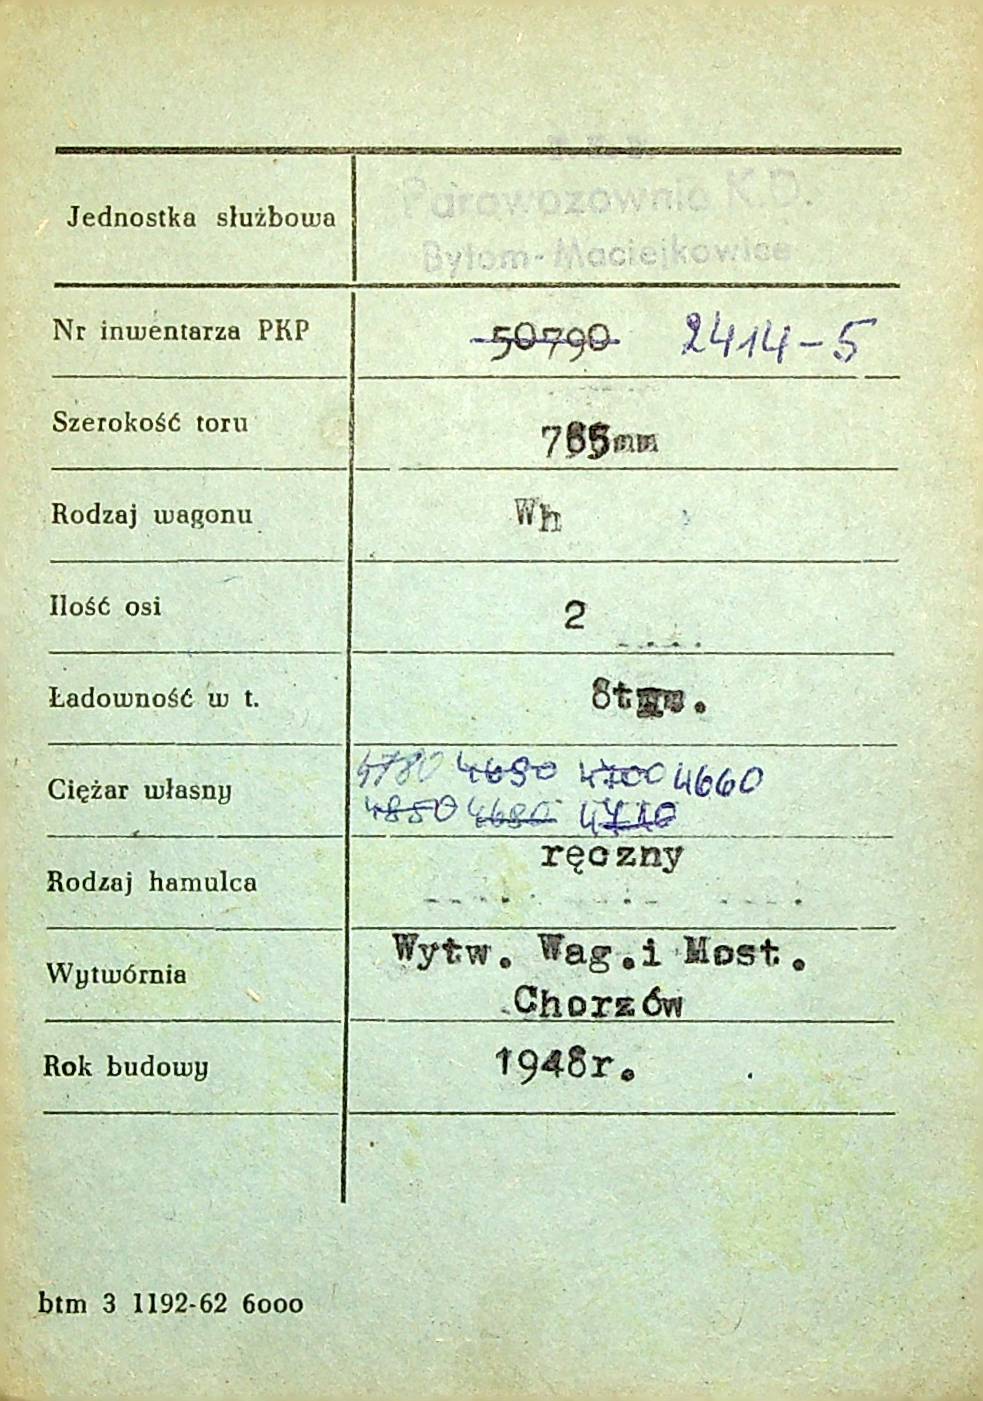 P. K. P.
Parowozownia K.D.
Jednostka służbowa
Bytom-Maciejkowice
Nr inwentarza PKP 50790 2414-5
Szerokość toru 785mm
Rodzaj wagonu Wh
Ilość osi 2
Ładowność w t. 8t
Ciężar własny 4780 4690 4700 4660
4850 4680 4710
Rodzaj hamulca ręczny
Wytwórnia Wytw. Wag.i Most.
Chorzów
Rok budowy 1948r.
btm 3 1192-62 6000